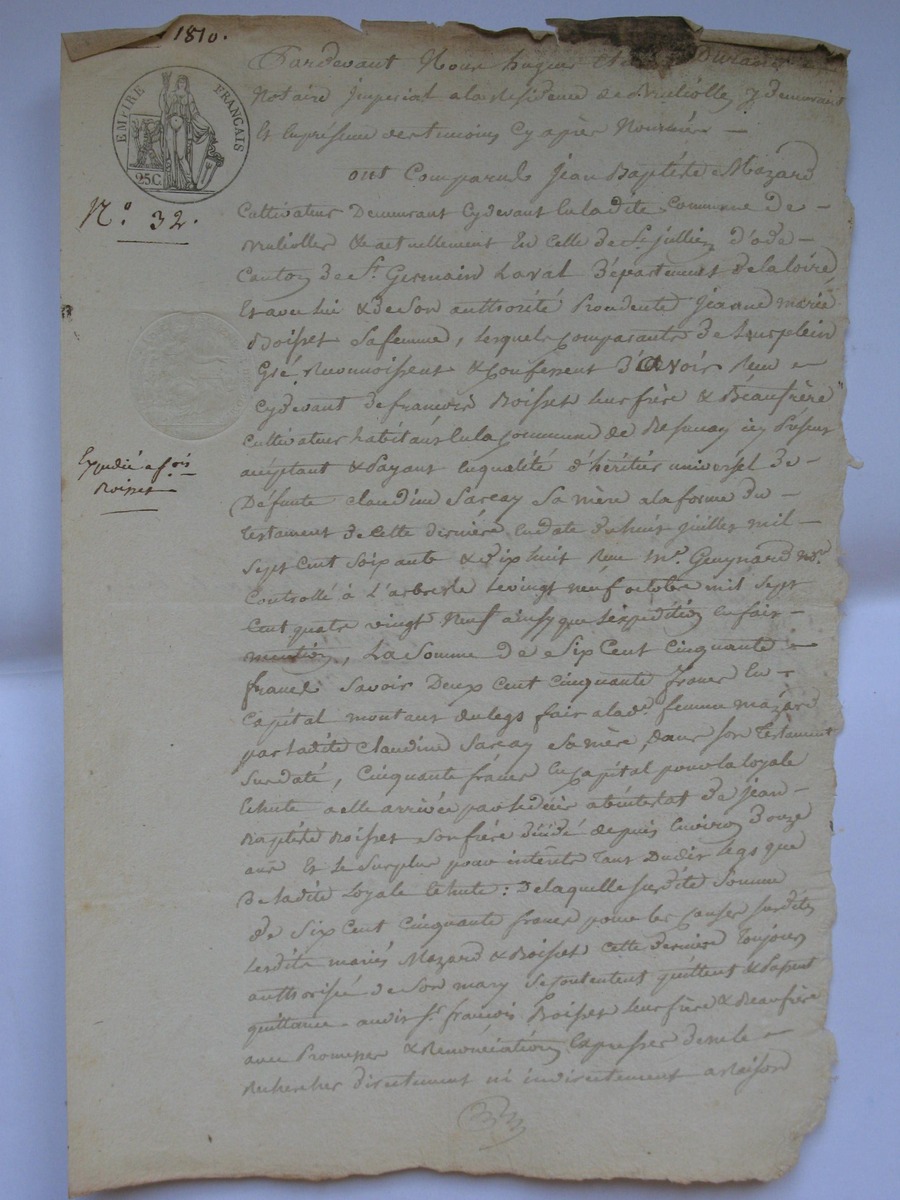 1810.
EMPIRE FRANÇAIS
25C
N.o 32.
Expedié a f.ois
Roisset
Pardevant Nous hugues Durand
Notaire Imperial a la residence de violles y demeurant
Et en présence des temoins Cy après Nommés —
ont Comparu Jean Baptéste Mazard
Cultivateur Demeurant Cydevant en la dite Commune de -
violles & actuellement En Celle de St. jullien d'ode -
Canton de St. Germain Laval Département de la loire
Et avec lui & de son authorité Procedente Jeanne marie
Roisset sa femme, lesquels Comparants de leur plein
Gré, Reconnoissent & Confessent D'avoir Reçu
Cydevant de françois Roisset leur frère & Beaufrère
Cultivateur habitant en la Commune de Ressenay icy Présent
acceptant & Payant en qualité d'héritier universel de
Défunte Claudine Sarcay Sa mère a la forme du -
testament de Cette dernière en date du huit juillet mil -
Sept Cent Soixante & dix huit Reçu Me. Geuynard nore.
Controllé à L'arbresle le vingt neuf octobre mil Sept
Cent quatre vingt Neuf ainsy que l'expédition en fait -
mention, La Somme de Six Cent Cinquante -
francs Savoir Deux Cent Cinquante francs en -
Capital montant du legs fait a lad.e femme mazard
par ladite Claudine Sarcay Sa mère dans Son Testament
Surdaté, Cinquante francs en Capital pour la loyale
Echute a elle arrivée par le décès abintestat de Jean -
Baptéste Roisset Son frère décédé depuis Environ Douze
ans Et le Surplus pour intérêts Tant Dudit Legs que
De ladite Loyale Echute : de laquelle Susdite Somme
de Six Cent Cinquante francs pour les Causes susdites
lesdits mariés Mazard & Roisset Cette dernière Toujours
authorisée de Son mary Se Contentent quittent & Passent
quittance audit Sr. françois Roisset leur frère & Beaufrère
avec Promesse & Renonciation Expresses de ne le -
Rechercher directement ni indirectement a Raison